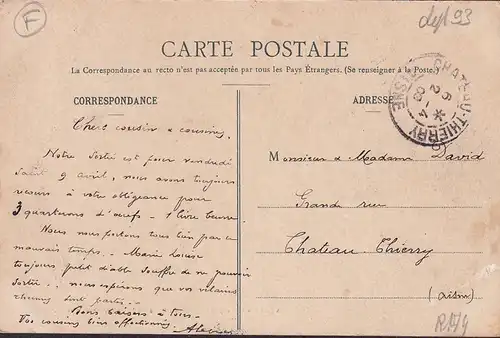 F
dept 93
CARTE POSTALE
La Correspondance au recto n'est pas acceptée par tous les Pays Étrangers. (Se renseigner à la Poste)
CORRESPONDANCE
ADRESSE
CHATEAU-THIERRY
AISNE
Chers cousin & cousines,
Notre sortie est pour vendredi
9 avril, nous avons toujours
recours à votre obligeance pour
3 quarterons d'œufs - 1 livre beurre
Nous nous portons tous bien par ce
mauvais temps. - Marie Louise
toujours petit diable souffre de ne pouvoir
sortir.. nous espérons que ces vilains
sont partis. -
Bons baisers à tous -
Vos cousins bien affectionnés.
Monsieur & Madame David
Grande rue
Chateau Thierry
(aisne)